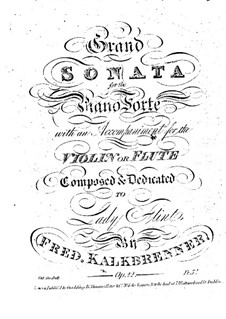 Grand
SONATA
for the
Piano Forte
with an Accompaniment for the
VIOLIN OR FLUTE
Composed & Dedicated
TO
Lady Flint,
By
(FRED. KALKBRENNER)
Op. 22